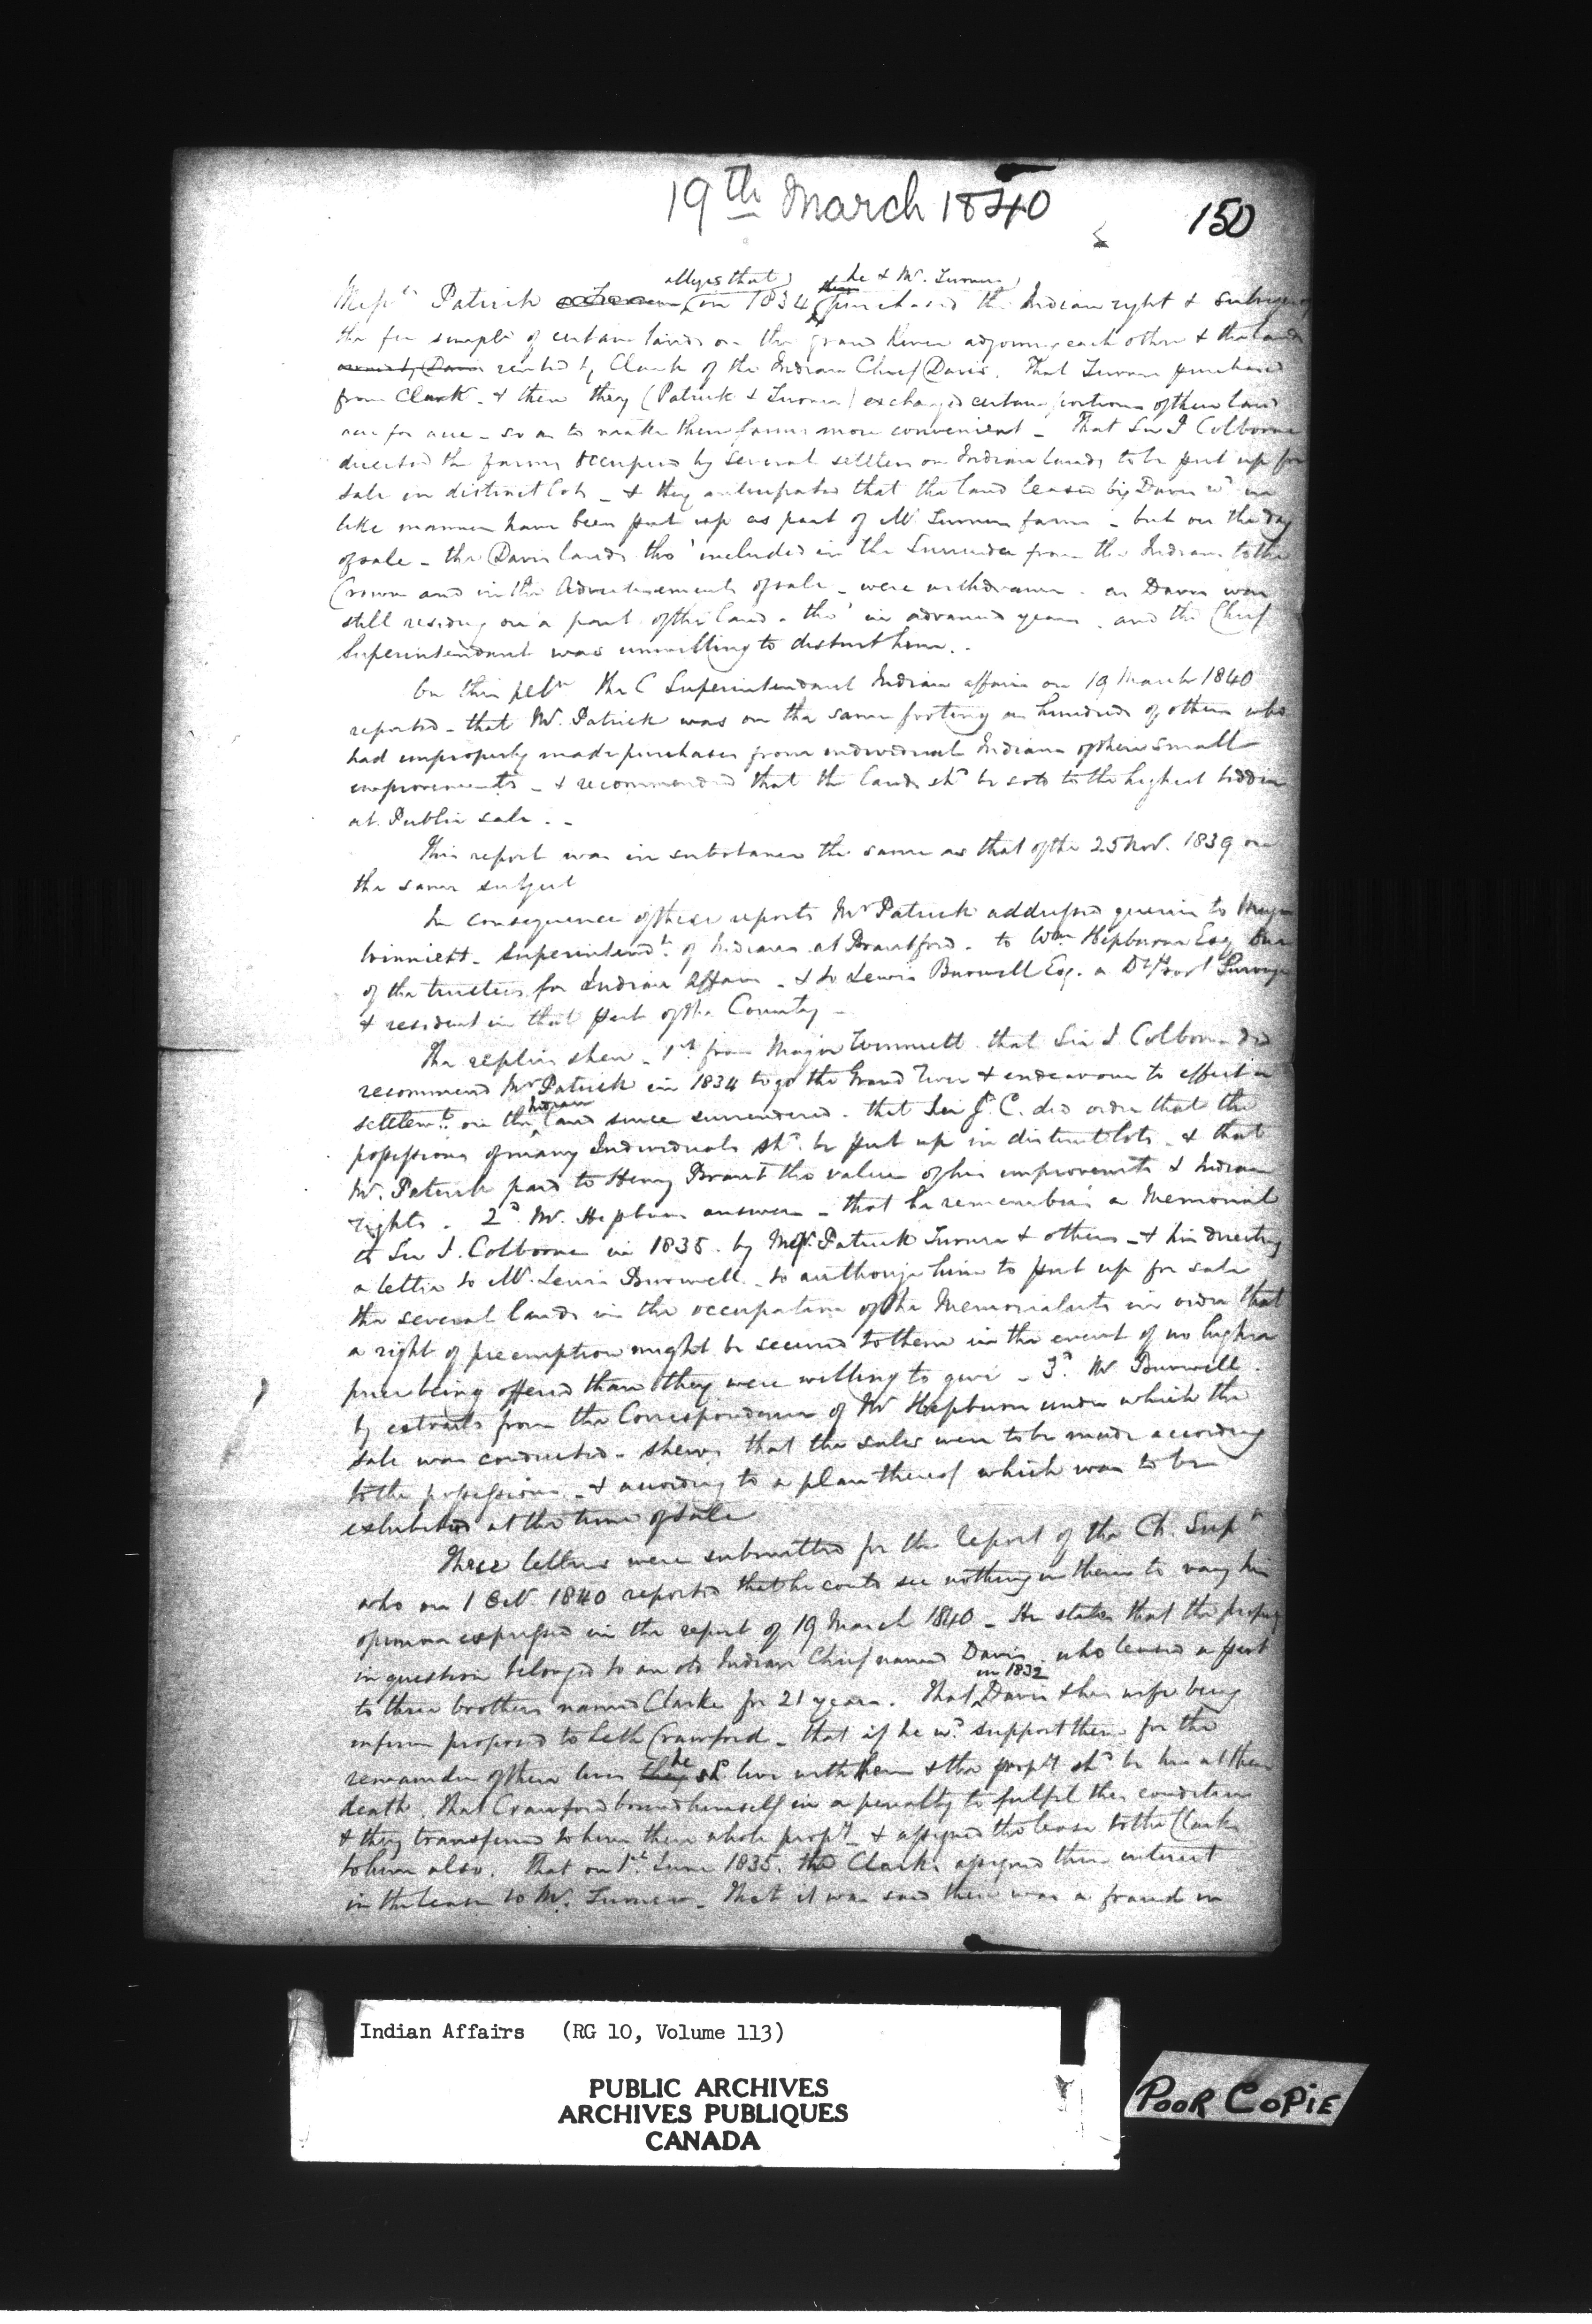 19th March 1840
150
alleges that he & Mr. Turner
Messrs Patrick & Turner, in 1834 purchased the Indian right &
the fee simple of certain lands on the Grand River adjoining each other & the lands
owned by Davis rented by Clark of the Indian Chief Davis. That Turner purchased
from Clark - & then they (Patrick & Turner) exchanged certain portions of their land
acre for acre - so as to make their farms more convenient - That Sir J Colborne
directed the farms occupied by several settlers on Indian lands to be put up for
sale in distinct lots - & they anticipated that the land leased by Davis wd in
like manner have been put up as part of Mr Turners farm - but on the day
of sale - the Davis lands tho' included in the Surrender from the Indians to the
Crown and in the Advertisements of sale - were withdrawn - as Davis was
still residing on a part of the land - tho' in advanced years - and the Chief
Superintendant was unwilling to disturb him. -
On this petn the C Superintendant Indian affairs on 19 March 1840
reported - that Mr. Patrick was on the same footing as hundreds of others who
had improperly made purchases from individual Indians of their small
improvements - & recommended that the lands shd be sold to the highest bidder
at Public sale. -
This report was in substance the same as that of the 25 Nov. 1839 on
the same subject
In consequence of these reports Mr Patrick addressed queries to Major
Winniett - Superintendt of Indians at Brantford - to Wm Hepburn Esq One
of the trustees for Indian Affairs - & to Lewis Burwell Esq. a Dy Provl Surveyor
& resident in that part of the Country -
The replies shew - 1st from Major Winniett that Sir J. Colborne did
recommend Mr Patrick in 1834 to go the Grand River & endeavour to effect a
settlemt on the Indian land since surrendered - that Sir J. C. did order that the
possessions of many Individuals shd be put up in distinct lots - & that
Mr. Patrick paid to Henry Brant the value of his improvements & Indian
rights - 2d Mr. Hepburn answers - that he remembers a Memorial
to Sir J. Colborne in 1835 - by Messrs. Patrick Turner & others - & his directing
a letter to Mr. Lewis Burwell - to authorize him to put up for sale
the several lands in the occupation of the Memorialists in order that
a right of preemption might be secured to them in the event of no higher
price being offered than they were willing to give - 3d Mr Burwell
by extracts from the Correspondence of Mr Hepburn under which the
sale was conducted - shews that the sales were to be made according
to the possessions - & according to a plan thereof which was to be
exhibited at the time of sale
These letters were submitted for the report of the Ch. Supt
who on 1 Oct. 1840 reported that he could see nothing in them to vary his
opinion expressed in the report of 19 March 1840 - He states that the property
in question belonged to an old Indian Chief named Davis - who leased a part
to three brothers named Clarke for 21 years. That in 1832 Davis & his wife being
infirm proposed to Seth Crawford - that if he wd support them for the
remainder of their lives they he shd live with them & the propty shd be his at their
death. That Crawford bound himself in a penalty to fulfil the condition
& they transferred to him their whole propty - & assigned the lease to the Clarks
to him also. That on 1st June 1835. the Clarks assigned their interest
in the lease to Mr. Turner - That it was said there was a fraud in
Indian Affairs (RG 10, Volume 113)
PUBLIC ARCHIVES
ARCHIVES PUBLIQUES
CANADA
POOR COPIE